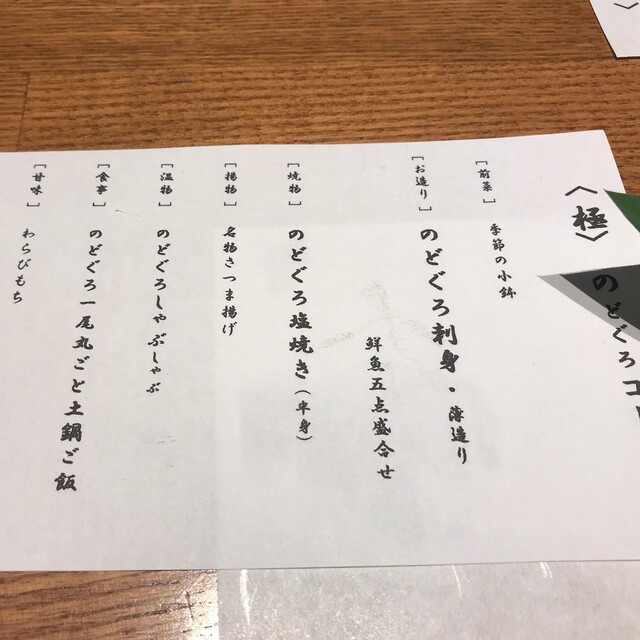 〈極〉
のどぐろコ
［前菜］
季節の小鉢
［お造り］
のどぐろ刺身・薄造り
鮮魚五点盛合せ
［焼物］
のどぐろ塩焼き（半身）
［揚物］
名物さつま揚げ
［温物］
のどぐろしゃぶしゃぶ
［食事］
のどぐろ一尾丸ごと土鍋ご飯
［甘味］
わらびもち